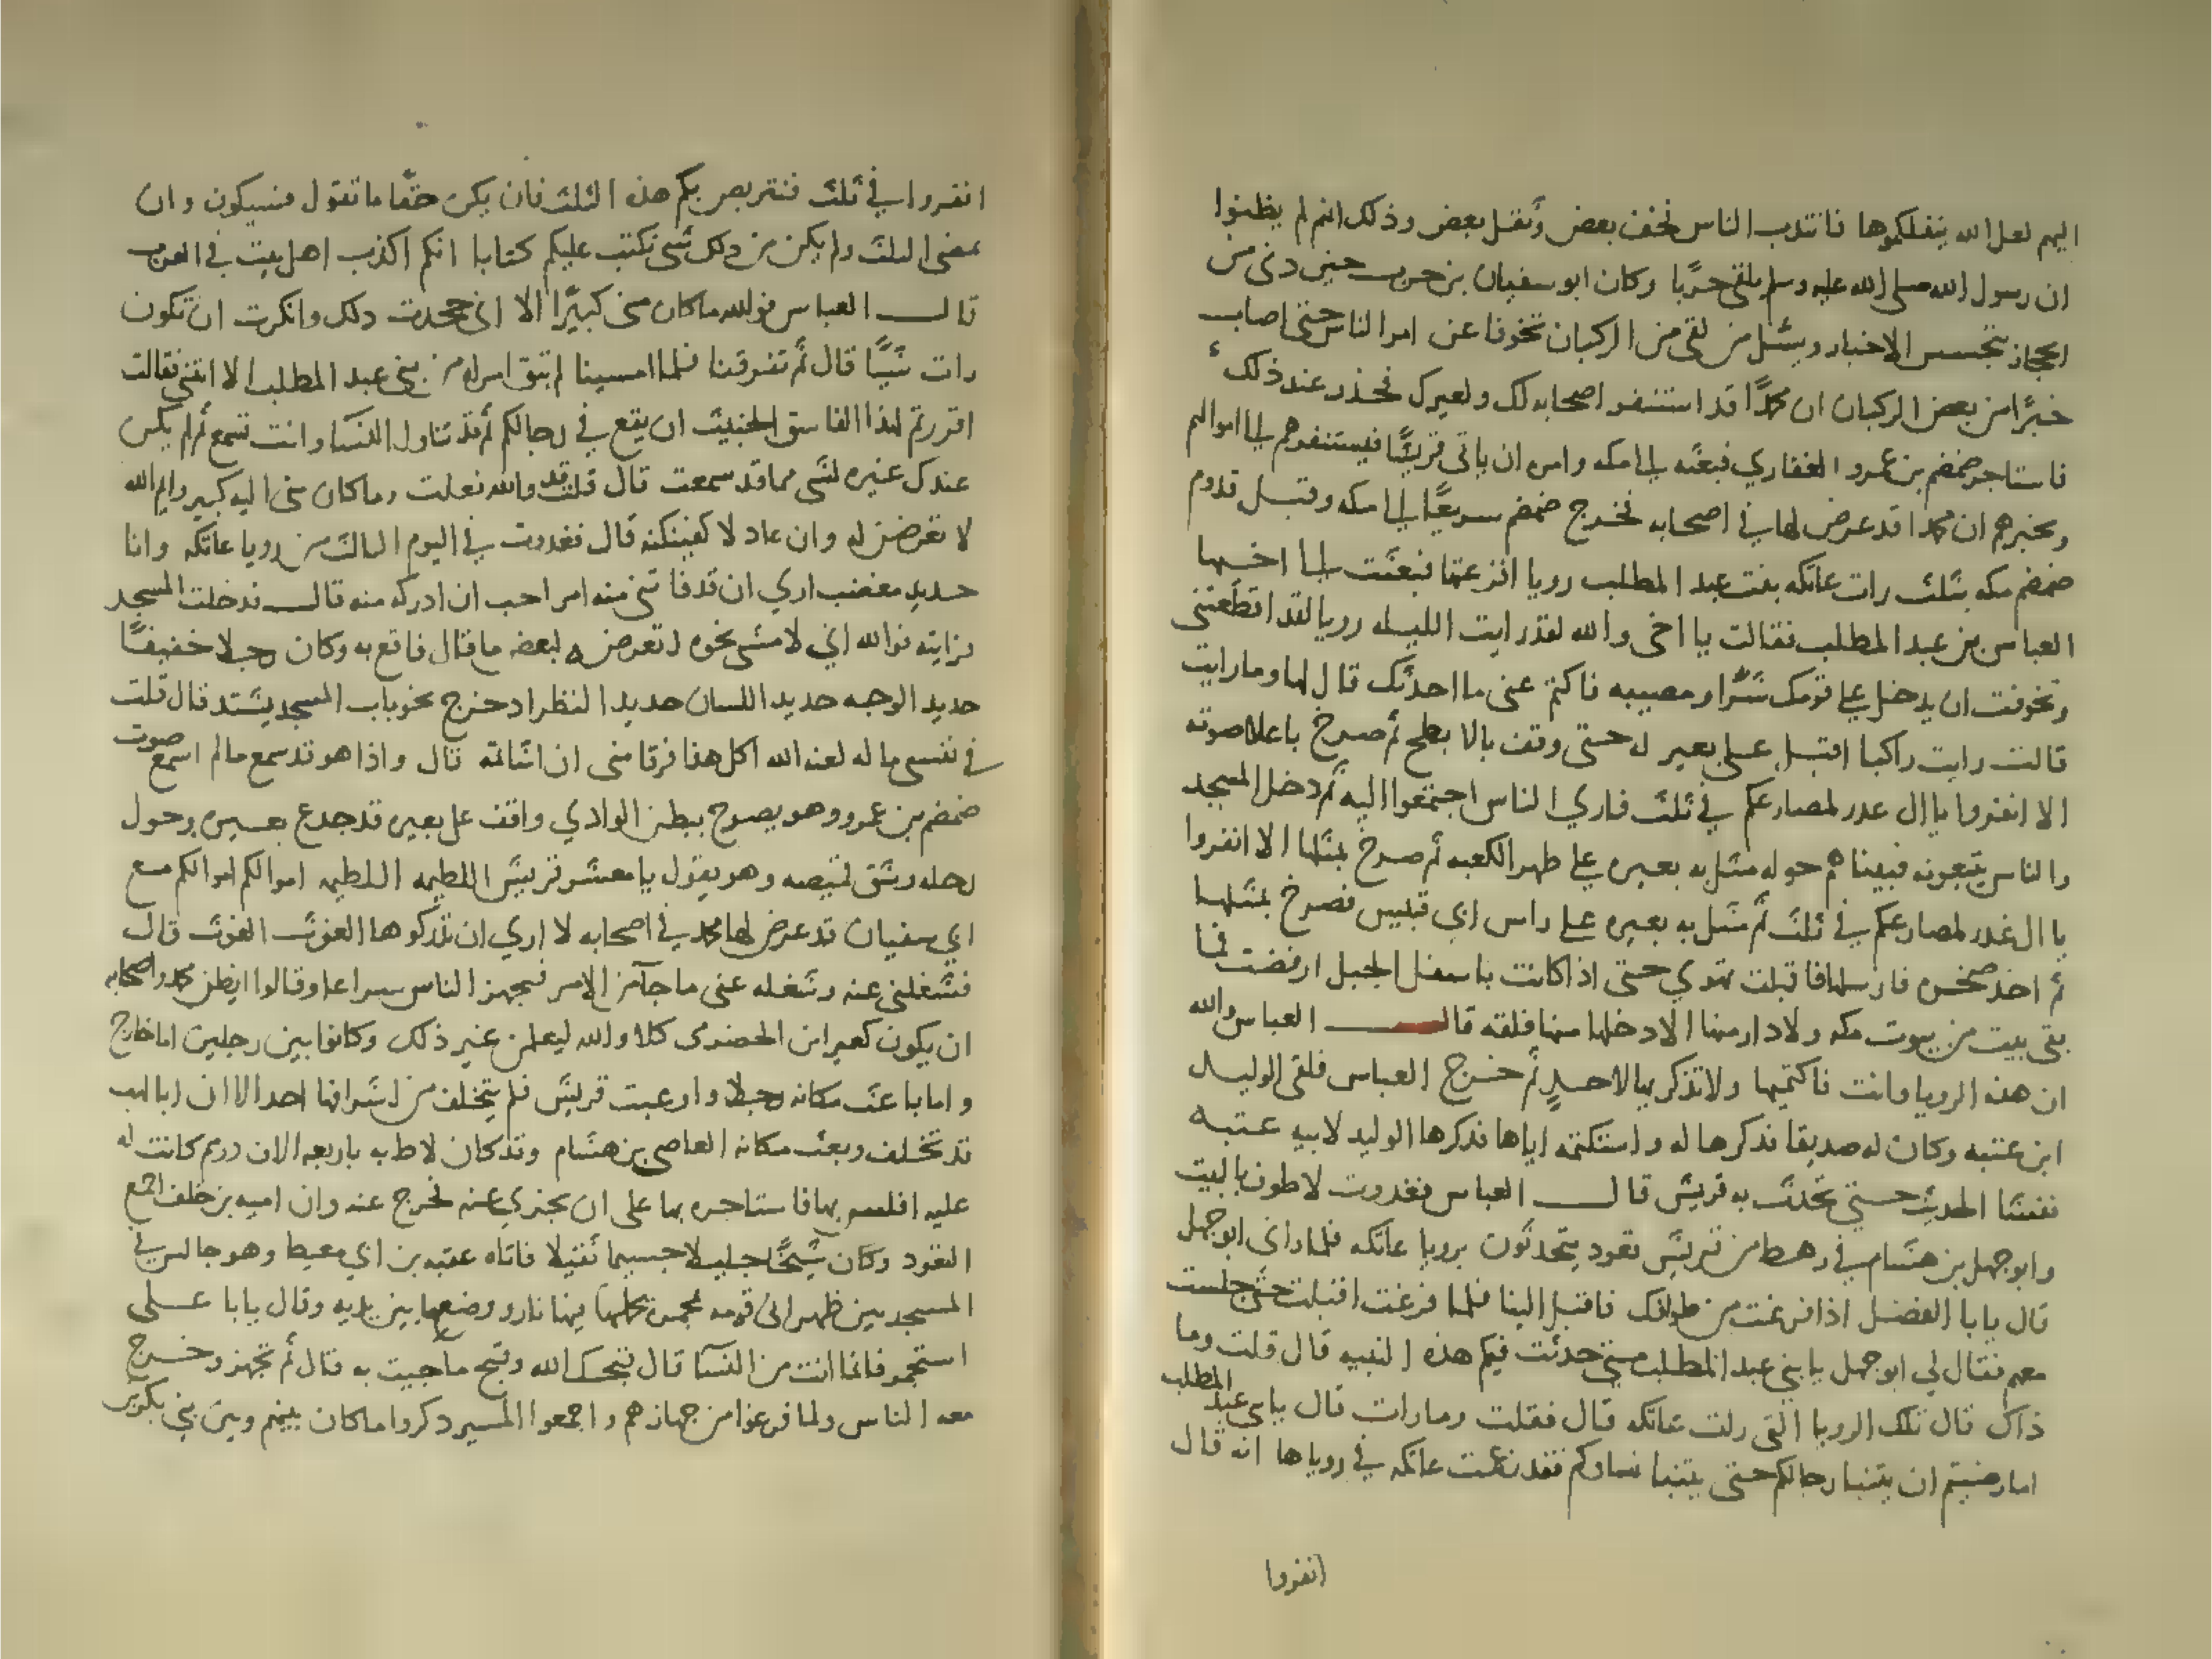 اليهم لعل الله ينفلكموها فانتدب الناس فخف بعض وثقل بعض وذلك انهم لم يظنوا
ان رسول الله صلى الله عليه وسلم يلقى حربًا وكان ابو سفيان بن حرب حين دنى من
الحجاز يتجسس الاخبار ويسئل من لقى من الركبان تخوفا عن امر الناس حتى اصاب
خبرًا من بعض الركبان ان محمدًا قد استنفر اصحابه لك ولعيرك فحذر عند ذلك
فاستاجر ضمضم بن عمرو الغفاري فبعثه الى مكه وامره ان ياتى قريشًا فيستنفرهم الى اموالهم
ويخبرهم ان محمدا قد عرض لها في اصحابه فخرج ضمضم سريعًا الى مكه وقبل قدوم
ضمضم مكه بثلث رات عاتكه بنت عبد المطلب رويا افزعتها فبعثت الى اخيها
العباس بن عبد المطلب فقالت يا اخى والله لقد رايت الليله رويا لقد افظعتنى
وتخوفت ان يدخل على قومك شرًا ومصيبه فاكتم عنى ما احدثك قال لها وما رايت
قالت رايت راكبا اقبل على بعير له حتى وقف بالابطح ثم صرخ باعلا صوته
الا انفروا ياال غدر لمصارعكم في ثلث فاري الناس اجتمعوا اليه ثم دخل المسجد
والناس يتبعونه فبينا هم حوله مثل به بعيره على ظهر الكعبه ثم صرخ بمثلها الا انفروا
يا ال غدر لمصارعكم في ثلث ثم مثل به بعيره على راس ابي قبيس فصرخ بمثلها
ثم اخذ صخره فارسلها فاقبلت تهوي حتى اذا كانت باسفل الجبل ارفضت فما
بقى بيت من بيوت مكه ولا دار منها الا دخلها منها فلقه قال العباس والله
ان هذه الرويا وانت فاكتميها ولا تذكريها لاحدٍ ثم خرج العباس فلقى الوليد
ابن عتبه وكان له صديقا فذكرها له واستكتمه اياها فذكرها الوليد لابيه عتبه
ففشا الحديث حتى تحدث به قريش قال العباس فغدوت لاطوف بالبيت
وابو جهل بن هشام في رهط من قريش قعود يتحدثون برويا عاتكه فلما رانى ابو جهل
قال يابا الفضل اذا فرغت من طوافك فاقبل الينا فلما فرغت اقبلت حتى جلست
معهم فقال لي ابو جهل يا بني عبد المطلب متى حدثت فيكم هذه النبيه قال قلت وما
ذاك قال تلك الرويا التى رات عاتكه قال فقلت وما رات قال يا بني عبد المطلب
اما رضيتم ان يتنبا رجالكم حتى يتنبا نساوكم فقد زعمت عاتكه في روياها انه قال
انفروا
انفروا في ثلث فنتربص بكم هذه الثلث فان يكن حقًا ما تقول فسيكون وان
مضى الثلث ولم يكن من ذلك شى نكتب عليكم كتابا انكم اكذب اهل بيت في العرب
قال العباس فوالله ما كان منى كبيرًا الا انى جحدت ذلك وانكرت ان تكون
رات شيًا قال ثم تفرقنا فلما امسينا لم تبق امراه من بنى عبد المطلب الا اتتنى فقالت
اقررتم لهذا الفاسق الخبيث ان يقع في رجالكم ثم قد تناول النسا وانت تسمع ثم لم يكن
عندك غيره لشى مما قد سمعت قال قلت قد والله فعلت وما كان منى اليه كبير وايم الله
لا تعرضن له وان عاد لاكفينكنه قال فغدوت في اليوم الثالث من رويا عاتكه وانا
حديد مغضب اري ان قد فاتنى منه امر احب ان ادركه منه قال فدخلت المسجد
فرايته فوالله اني لامشى نحوه لتعرضه لبعض ما قال فاقع به وكان رجلا خفيفًا
حديد الوجه حديد اللسان حديد النظر اذ خرج نحو باب المسجد يشتد قال قلت
في نفسى ما له لعنه الله اكل هذا فرقا منى ان اشاتمه قال واذا هو قد سمع مالم اسمع صوت
ضمضم بن عمرو وهو يصرخ ببطن الوادي واقف على بعيره قد جدع بعيره وحول
رحله وشق قميصه وهو يقول يا معشر قريش اللطيمه اللطيمه اموالكم اموالكم مع
ابي سفيان قد عرض لها محمد في اصحابه لا اري ان تدركوها الغوث الغوث قال
فشغلنى عنه وشغله عنى ما جآ من الامر فتجهز الناس سراعا وقالوا ايظن محمد واصحابه
ان يكون كعير ابن الحضرمى كلا والله ليعلمن غير ذلك وكانوا بين رجلين اما خارج
واما باعث مكانه رجلا وارعبت قريش فلم يتخلف من اشرافها احد الا ان ابا لهب
قد تخلف وبعث مكانه العاصى بن هشام وقد كان لاط به باربعه الاف درهم كانت له
عليه افلس بها فاستاجره بها على ان يجزي عنه فخرج عنه وان اميه بن خلف اجمع
القعود وكان شيخًا جليلا جسيما ثقيلا فاتاه عقبه بن ابي معيط وهو جالس في
المسجد بين ظهرانى قومه بمجمره يحملها فيها نار ووضعها بين يديه وقال يابا على
استجمر فانما انت من النسآ قال قبحك الله وقبح ما جيت به قال ثم تجهز وخرج
معه الناس ولما فرغوا من جهازهم واجمعوا المسير ذكروا ما كان بينهم وبين بني بكر